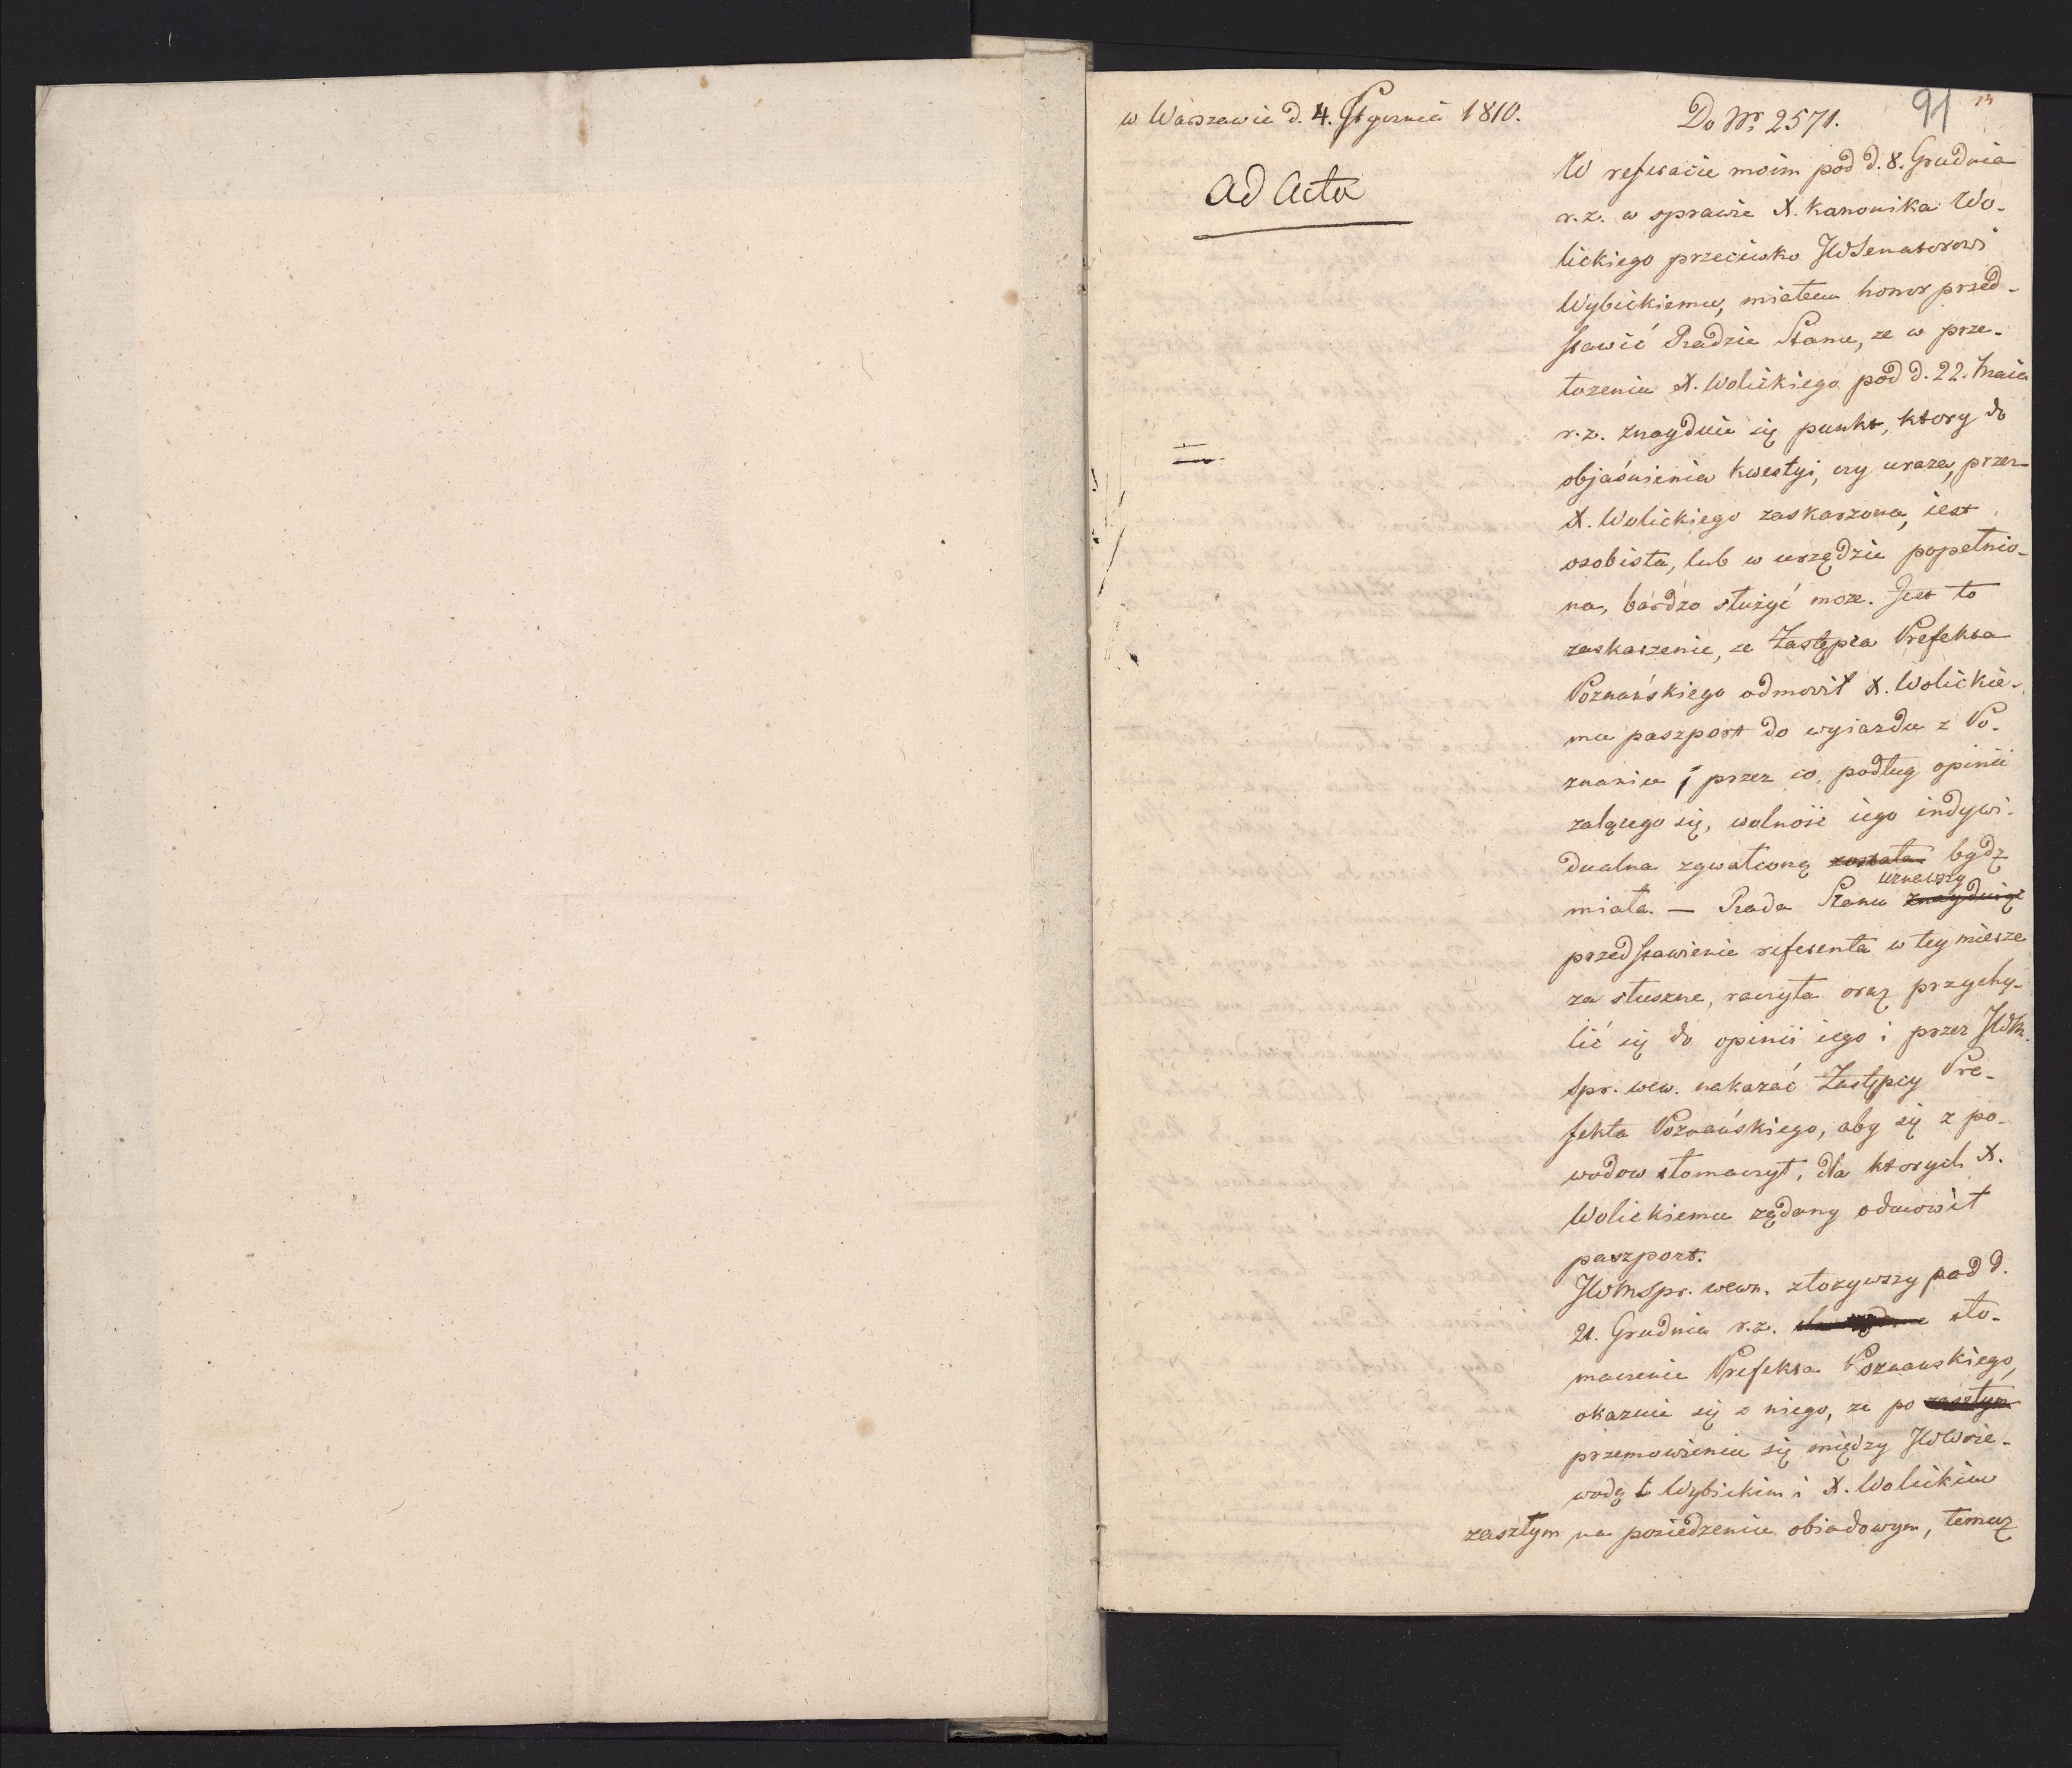 w Warszawie d. 4. Stycznia 1810.
Ad Acta
Do Nr. 2571.
91
W referacie moim pod d. 8. Grudnia
r. z. w sprawie X. Kanonika Wo-
lickiego przeciwko JWSenatorowi
Wybickiemu, miałem honor przed-
stawić Radzie Stanu, ze w prze-
łozeniu X. Wolickiego pod d. 22. Maia
r. z. znayduie się punkt, ktory do
objaśnienia kwestyi, czy uraza, przez
X. Wolickiego zaskarzona, iest
osobista, lub w urzędzie popełnio-
na, bardzo służyć moze. Jest to
zaskarzenie, ze Zastępca Prefekta
Poznańskiego odmowił X. Wolickie-
mu paszport do wyiazdu z Po-
znania i przez co, podług opinii
zalącego się, wolność iego indywi-
dualna zgwałconą została bydź
miała. — Rada Stanu uznawszy znayduiąc
przedstawienie referenta w tey mierze
za słuszne, raczyła oraz przychy-
lić się do opinii iego i przez JWM.
Spr. wew. nakazać Zastępcy Pre-
fekta Poznańskiego, aby się z po-
wodow tłomaczył, dla ktorych X.
Wolickiemu ządany odmowił
paszport.
JWMSpr. wewn. złozywszy pod d.
21. Grudnia r. z. tło-
maczenie Prefekta Poznanskiego,
okazuie się z niego, ze po zaszłym
przemowieniu się między JWWoie-
wodą Wybickim i X. Wolickim
zaszłym na posiedzeniu obiadowym, temuż